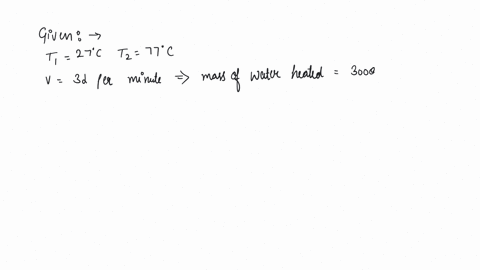 Given: →
T₁ = 27°C T₂ = 77°C
V = 3d per minute ⇒ mass of water heated = 3000